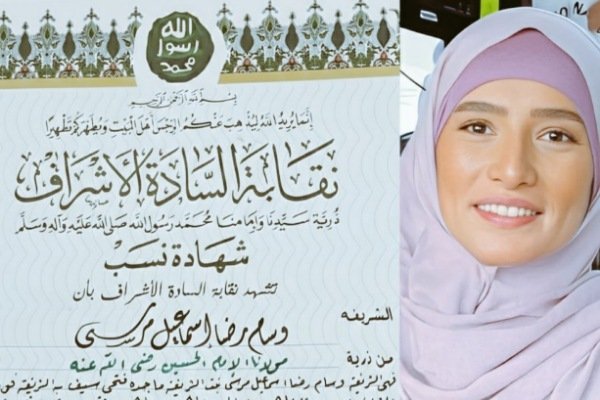 الله
رسول
محمد
بسم الله الرحمن الرحيم
إنما يريد الله ليذهب عنكم الرجس أهل البيت ويطهركم تطهيرا
نقابة السادة الأشراف
ذرية سيدنا وإمامنا محمد رسول الله صلى الله عليه وآله وسلم
شهادة نسب
تشهد نقابة السادة الأشراف بأن
الشريفه
وسام رضا اسماعيل مرسى
من ذرية
مولانا الامام الحسين رضى الله عنه
فهى الشريفة وسام رضا اسماعيل مرسى